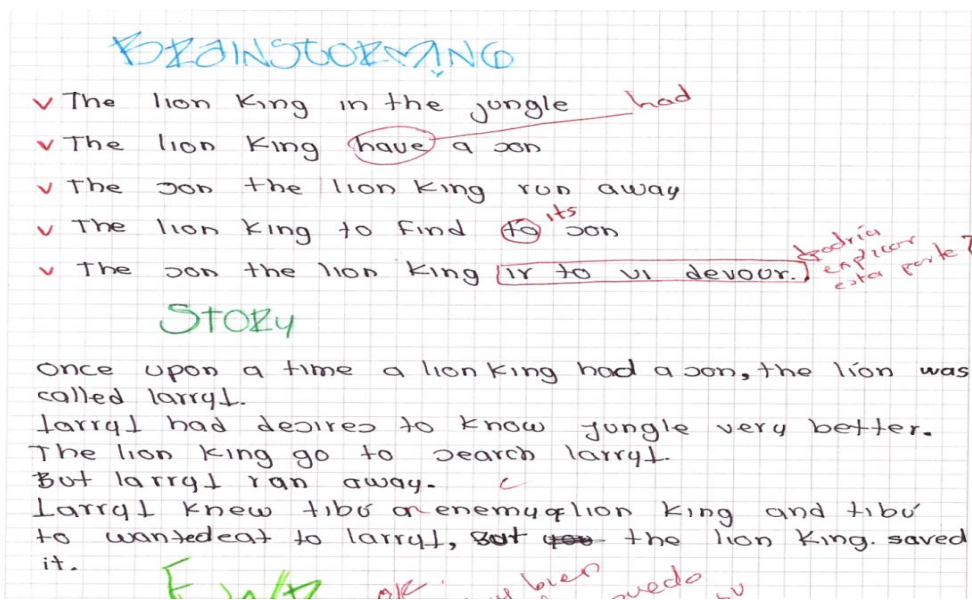 BRAINSTORMING
The lion King in the jungle had
The lion King have a son
The son the lion King run away
The lion King to find to its son
The son the lion King ir to vi devour. podría explicar esta parte?
STORY
Once upon a time a lion king had a son, the lion was
called larry I.
larry I had desires to know jungle very better.
The lion king go to search larry I.
But larry I ran away.
Larry I knew tibú an enemy of lion king and tibú
to wanted eat to larry I, but the lion King. saved
it.
ok. bien puedo